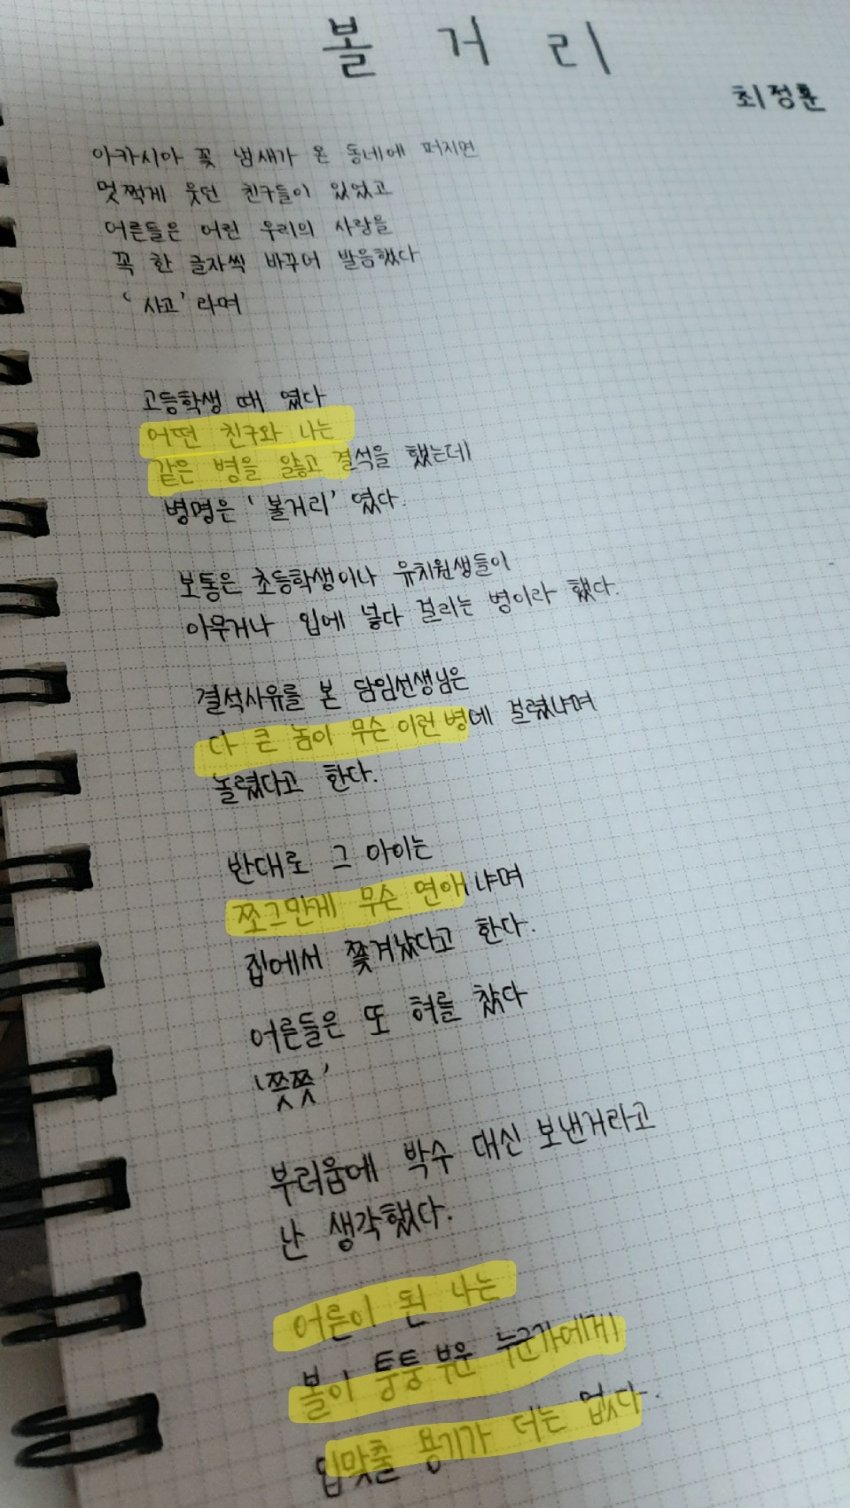 볼거리
최정훈
아카시아 꽃 냄새가 온 동네에 퍼지면
멋쩍게 웃던 친구들이 있었고
어른들은 어린 우리의 사랑을
꼭 한 글자씩 바꾸어 발음했다
‘사고’라며
고등학생 때 였다
어떤 친구와 나는
같은 병을 앓고 결석을 했는데
병명은 ‘볼거리’였다.
보통은 초등학생이나 유치원생들이
아무거나 입에 넣다 걸리는 병이라 했다.
결석사유를 본 담임선생님은
다 큰 놈이 무슨 이런 병에 걸렸냐며
놀렸다고 한다.
반대로 그 아이는
쪼그만게 무슨 연애냐며
집에서 쫓겨났다고 한다.
어른들은 또 혀를 찼다
‘쯧쯧’
부러움에 박수 대신 보낸거라고
난 생각했다.
어른이 된 나는
볼이 퉁퉁 부은 누군가에게
입맞출 용기가 더는 없다.